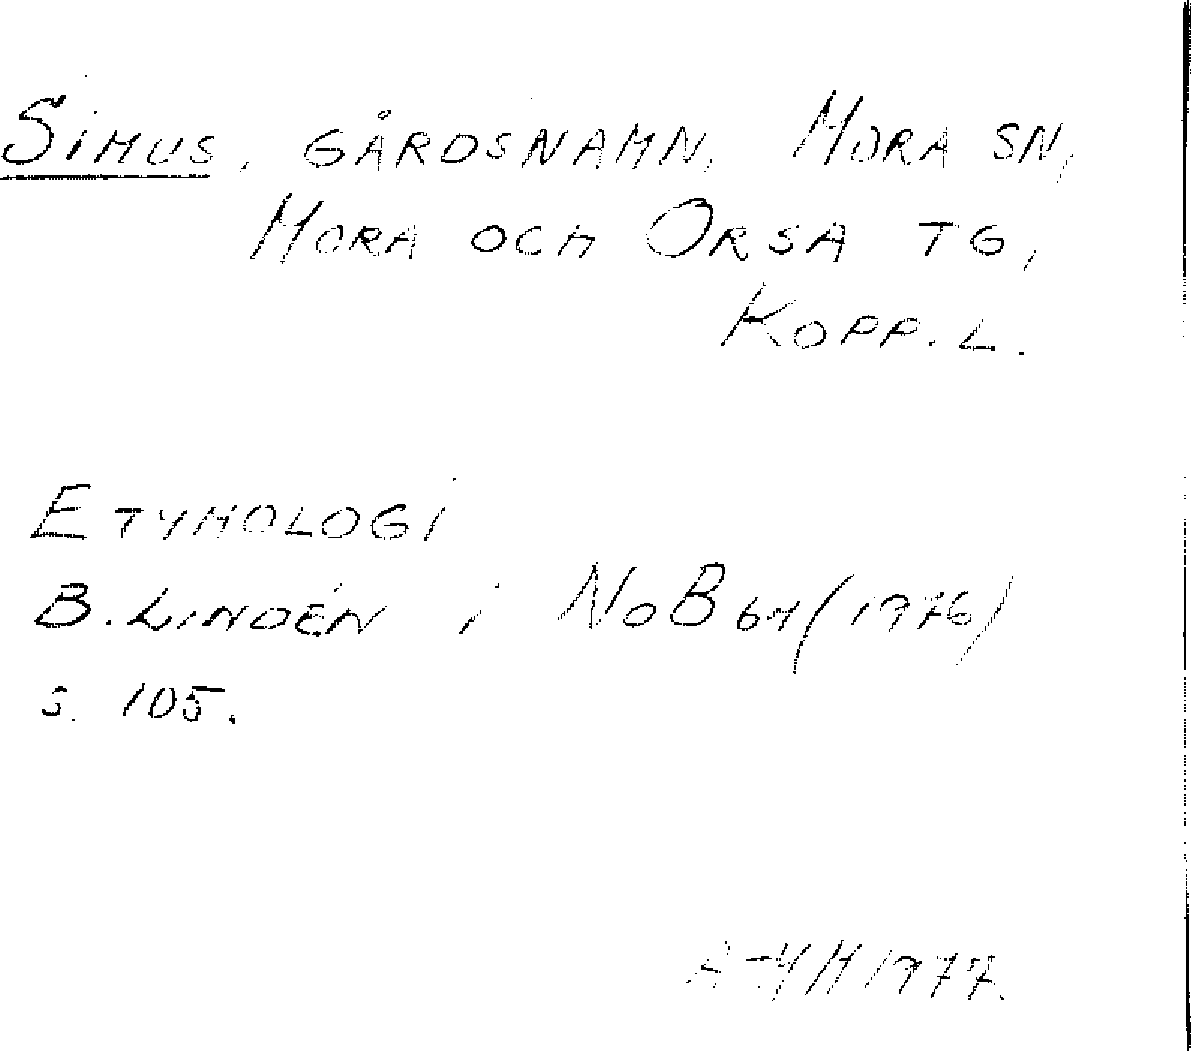 Simus, gårdsnamn, Mora sn,
Mora och Orsa tg,
Kopp. l.
Etymologi
B. Lindén i NoB 64 (1976)
s. 105.
1977.